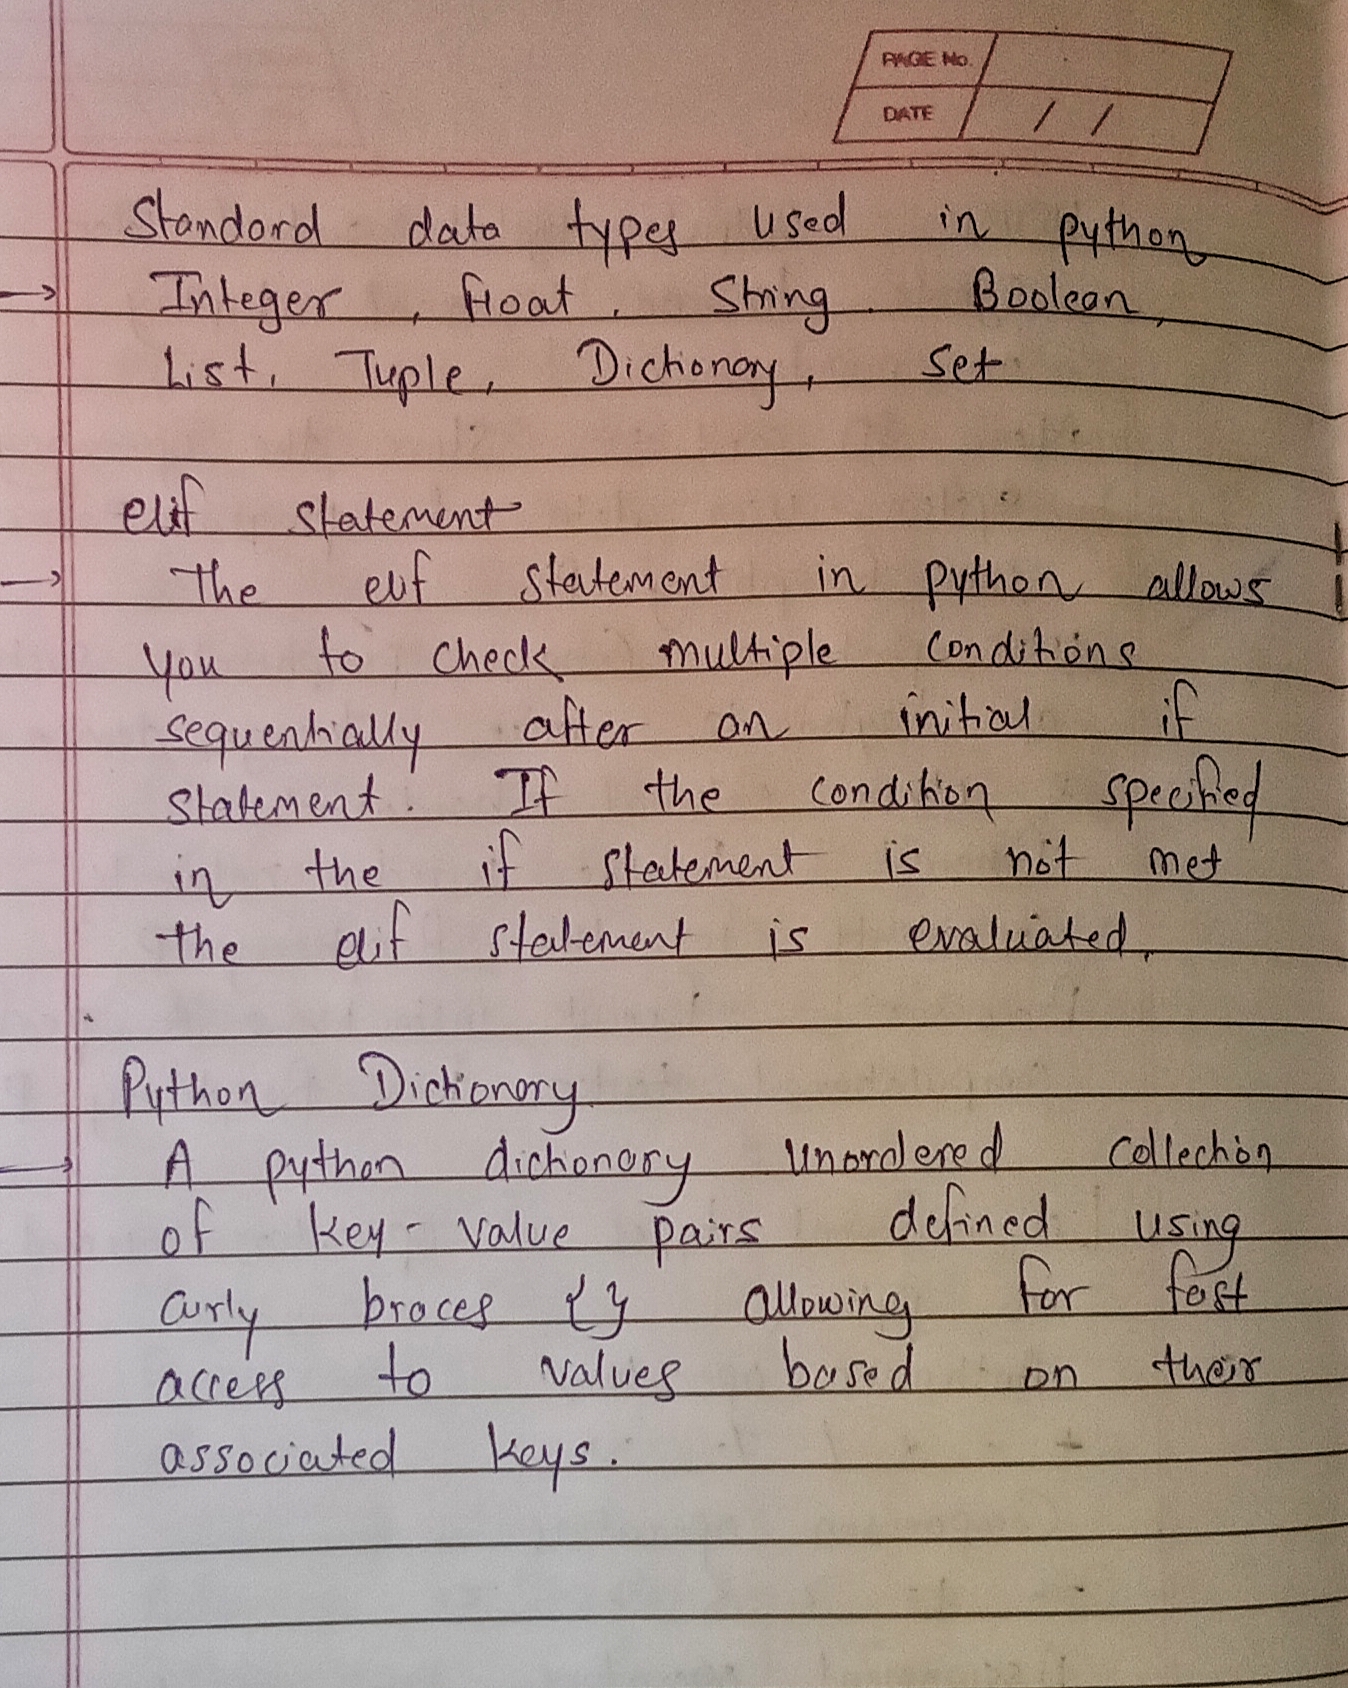 PAGE No.
DATE / /
Standard data types used in python
→ Integer, float, String. Boolean,
List, Tuple, Dictionary, set
elif statement
→ The elif statement in python allows
you to check multiple conditions
sequentially after an initial if
statement. If the condition specified
in the if statement is not met
the elif statement is evaluated.
Python Dictionary
→ A python dictionary unordered collection
of key-value pairs defined using
curly braces {} allowing for fast
access to values based on their
associated keys.